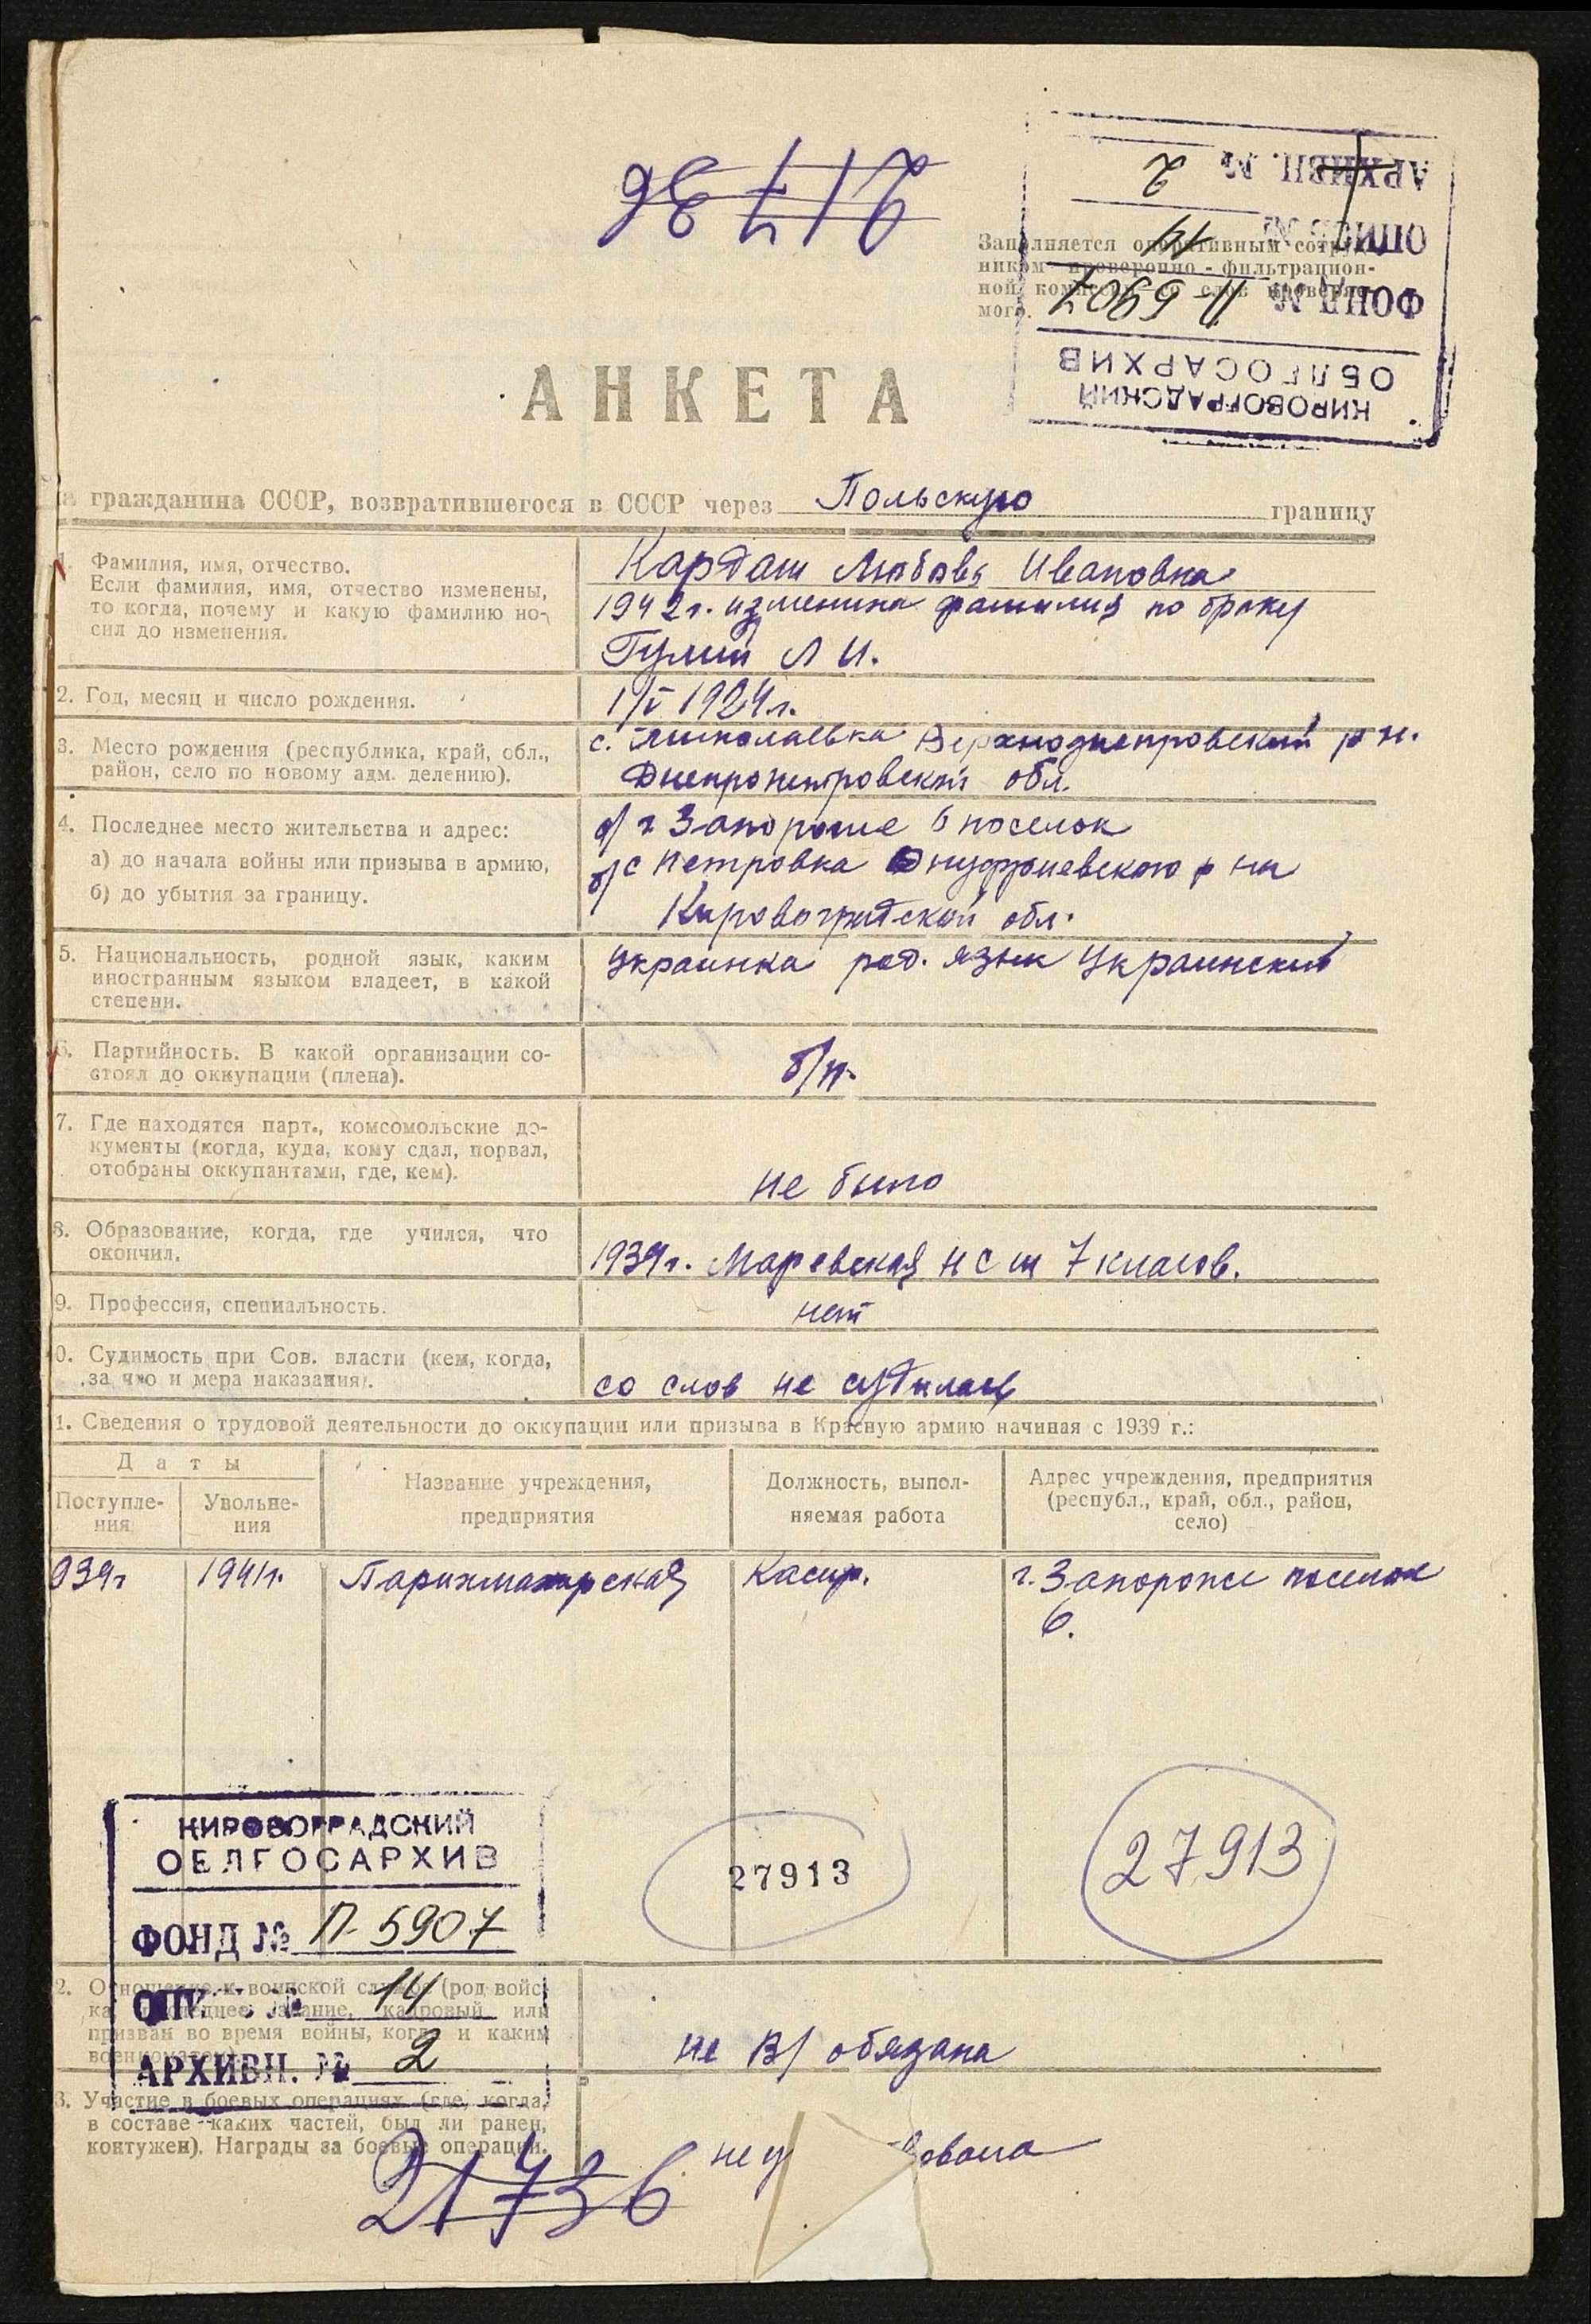 21736
Заполняется оперативным сотруд-
ником проверочно-фильтрацион-
ной комиссии со слов проверяе-
мого.
КИРОВОГРАДСКИЙ
ОБЛГОСАРХИВ
ФОНД № П-5907
ОПИСЬ № 14
АРХИВН. № 2
АНКЕТА
гражданина СССР, возвратившегося в СССР через Польскую границу
1. Фамилия, имя, отчество.
Если фамилия, имя, отчество изменены,
то когда, почему и какую фамилию но-
сил до изменения.
Кардаш Любовь Ивановна
1942 г. изменила фамилия по браку
Гулий Л И.
2. Год, месяц и число рождения.
1/V 1924 г.
3. Место рождения (республика, край, обл.,
район, село по новому адм. делению).
с. Миколаевка Верхноднепровский р н.
Днепропетровской обл.
4. Последнее место жительства и адрес:
а) до начала войны или призыва в армию,
б) до убытия за границу.
а/ г Запорожие 6 поселок
б/ с Петровка Онуфриевского р на
Кировоградской обл.
5. Национальность, родной язык, каким
иностранным языком владеет, в какой
степени.
украинка род. язык Украинский
6. Партийность. В какой организации со-
стоял до оккупации (плена).
б/п.
7. Где находятся парт., комсомольские до-
кументы (когда, куда, кому сдал, порвал,
отобраны оккупантами, где, кем).
не было
8. Образование, когда, где учился, что
окончил.
1939 г. Маревская н с ш 7 класов.
9. Профессия, специальность.
нет
0. Судимость при Сов. власти (кем, когда,
за что и мера наказания).
со слов не судилась
1. Сведения о трудовой деятельности до оккупации или призыва в Красную армию начиная с 1939 г.:
Даты
Поступле-
ния
Увольне-
ния
Название учреждения,
предприятия
Должность, выпол-
няемая работа
Адрес учреждения, предприятия
(республ., край, обл., район,
село)
939 г 1941 г. Парихмахирская Касир. г. Запорожие поселок
6.
КИРОВОГРАДСКИЙ
ОБЛГОСАРХИВ
ФОНД № П-5907
ОПИСЬ № 14
АРХИВН. № 2
27913
27913
2. Отношение к воинской службе (род войс-
ка, последнее звание, кадровый или
призван во время войны, когда и каким
военкоматом).
не В/ обязана
3. Участие в боевых операциях (где, когда,
в составе каких частей, был ли ранен,
контужен). Награды за боевые операции.
не у вовала
21736